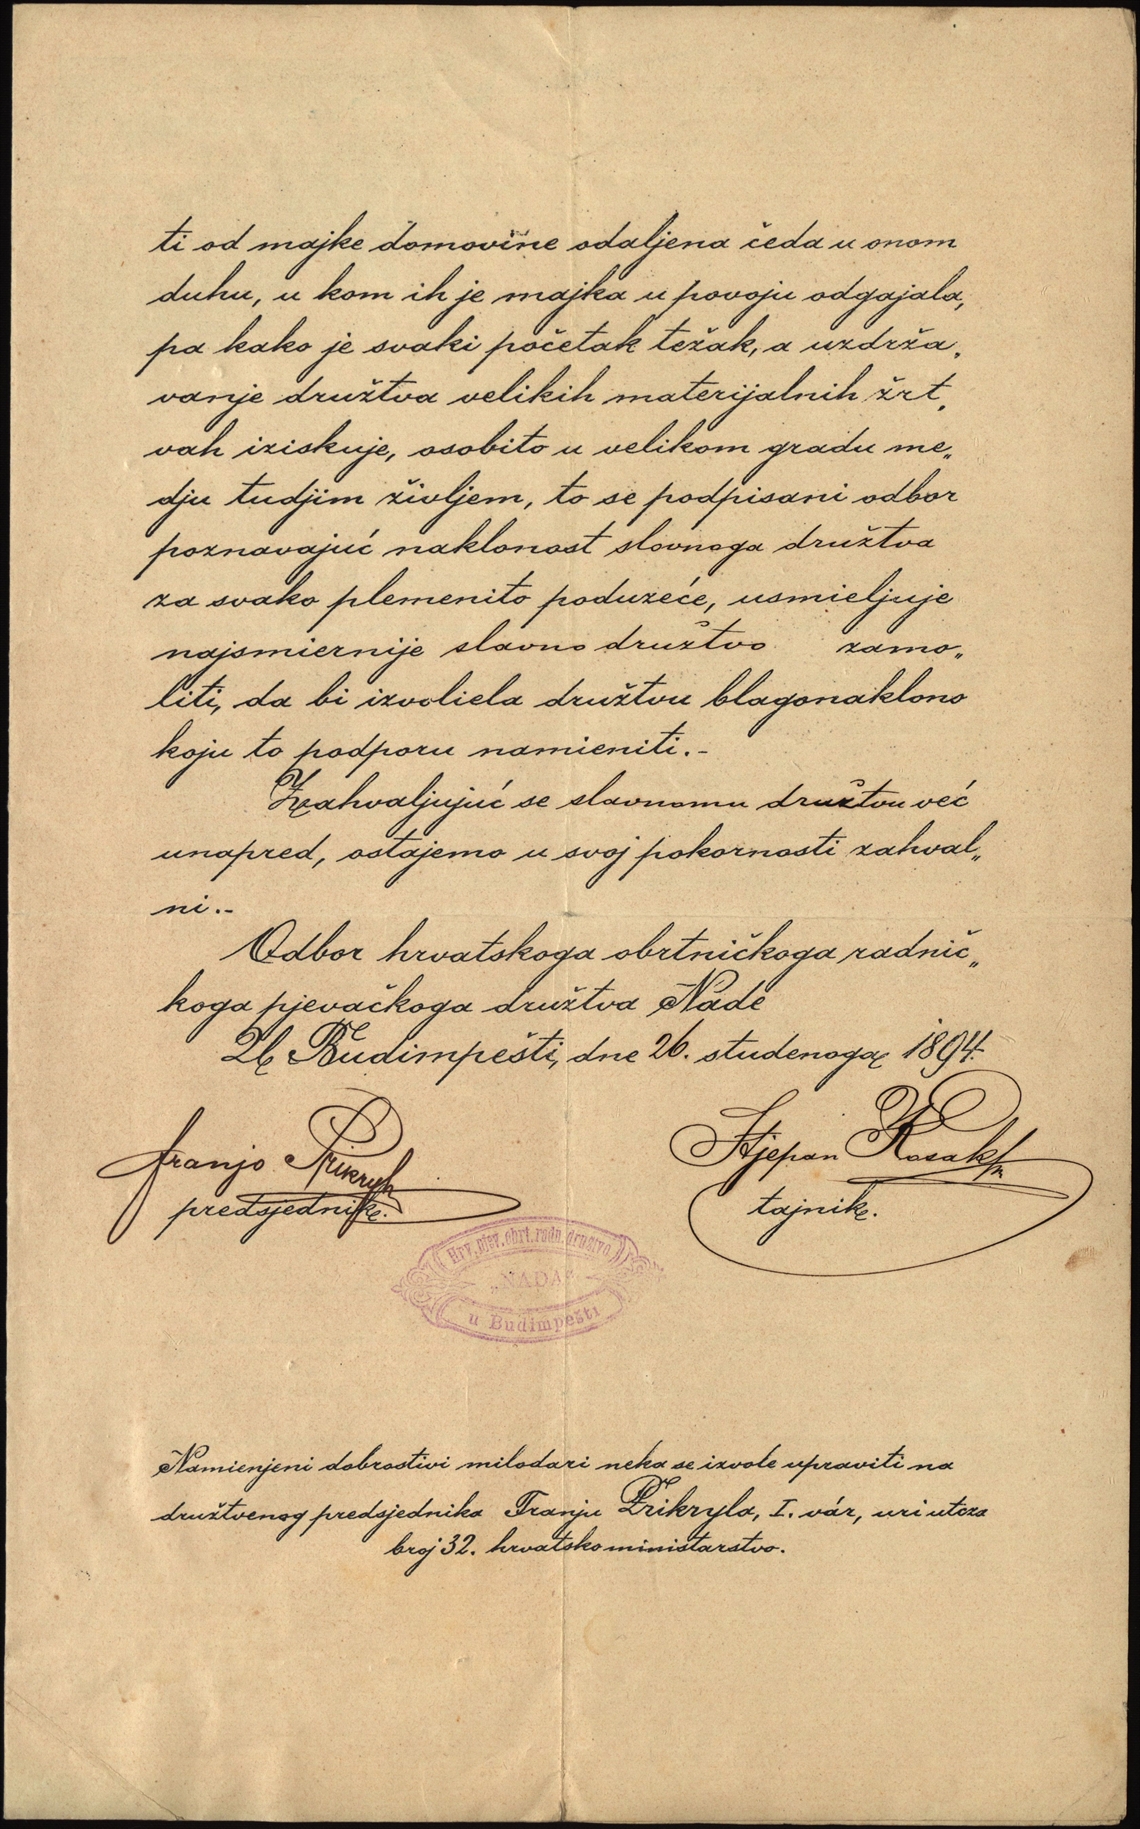 ti od majke domovine odaljena čeda u onom
duhu, u kom ih je majka u povoju odgajala,
pa kako je svaki početak težak, a uzdrža„
vanje družtva velikih materijalnih žrt„
vah iziskuje, osobito u velikom gradu me„
dju tudjim življem, to se podpisani odbor
poznavajuć naklonost slavnoga družtva
za svako plemenito poduzeće, usmieljuje
najsmiernije slavno družtvo zamo„
liti, da bi izvoliela družtvu blagonaklono
koju to podporu namieniti.-
Zahvaljujuć se slavnomu družtvu već
unapred, ostajemo u svoj pokornosti zahval„
ni.-
Odbor hrvatskoga obrtničkoga radnič„
koga pjevačkoga družtva Nade
U Budimpešti, dne 26. studenoga 1894.
Franjo Prikryl
predsjednik.
Stjepan Kosak
tajnik.
Hrv. pjev. obrt. radn. družtvo
„NADA“
u Budimpešti
Namienjeni dobrostivi milodari neka se izvole upraviti na
družtvenog predsjednika Franju Prikryla, I. vár, uri utcza
broj 32. hrvatsko ministarstvo.